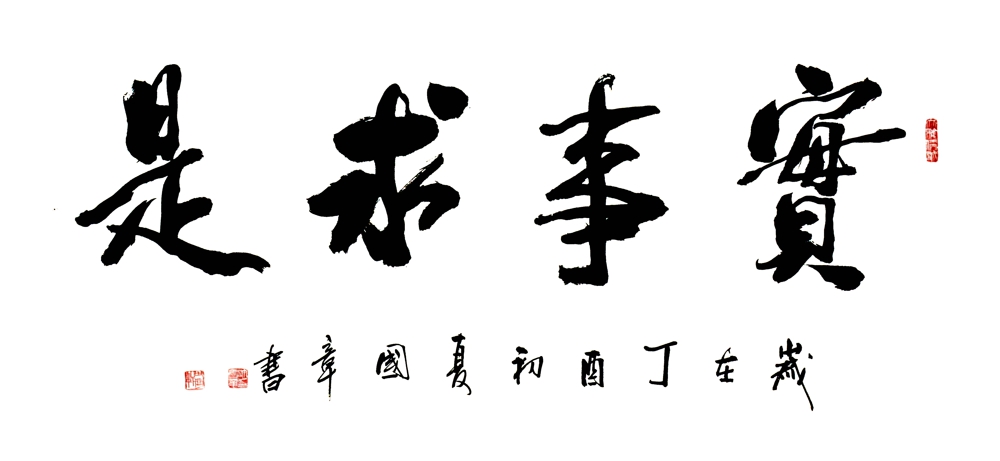 實事求是
歲在丁酉初夏國章書